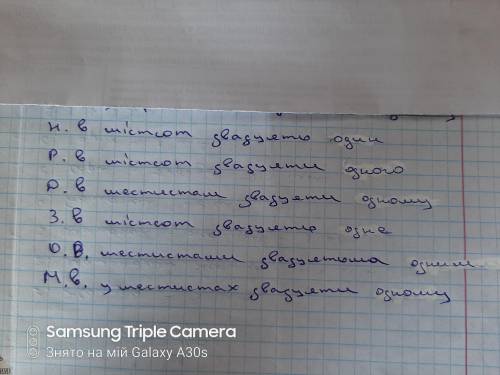 Н. в шістсот двадцять один
Р. в шістсот двадцяти дного
Д. в шестистам двадцяти одному
З. в шістсот двадцять одне
О. В. шестистами двадцятьма одним
М. в. у шестистах двадцяти одному
Samsung Triple Camera
Знято на мій Galaxy A30s